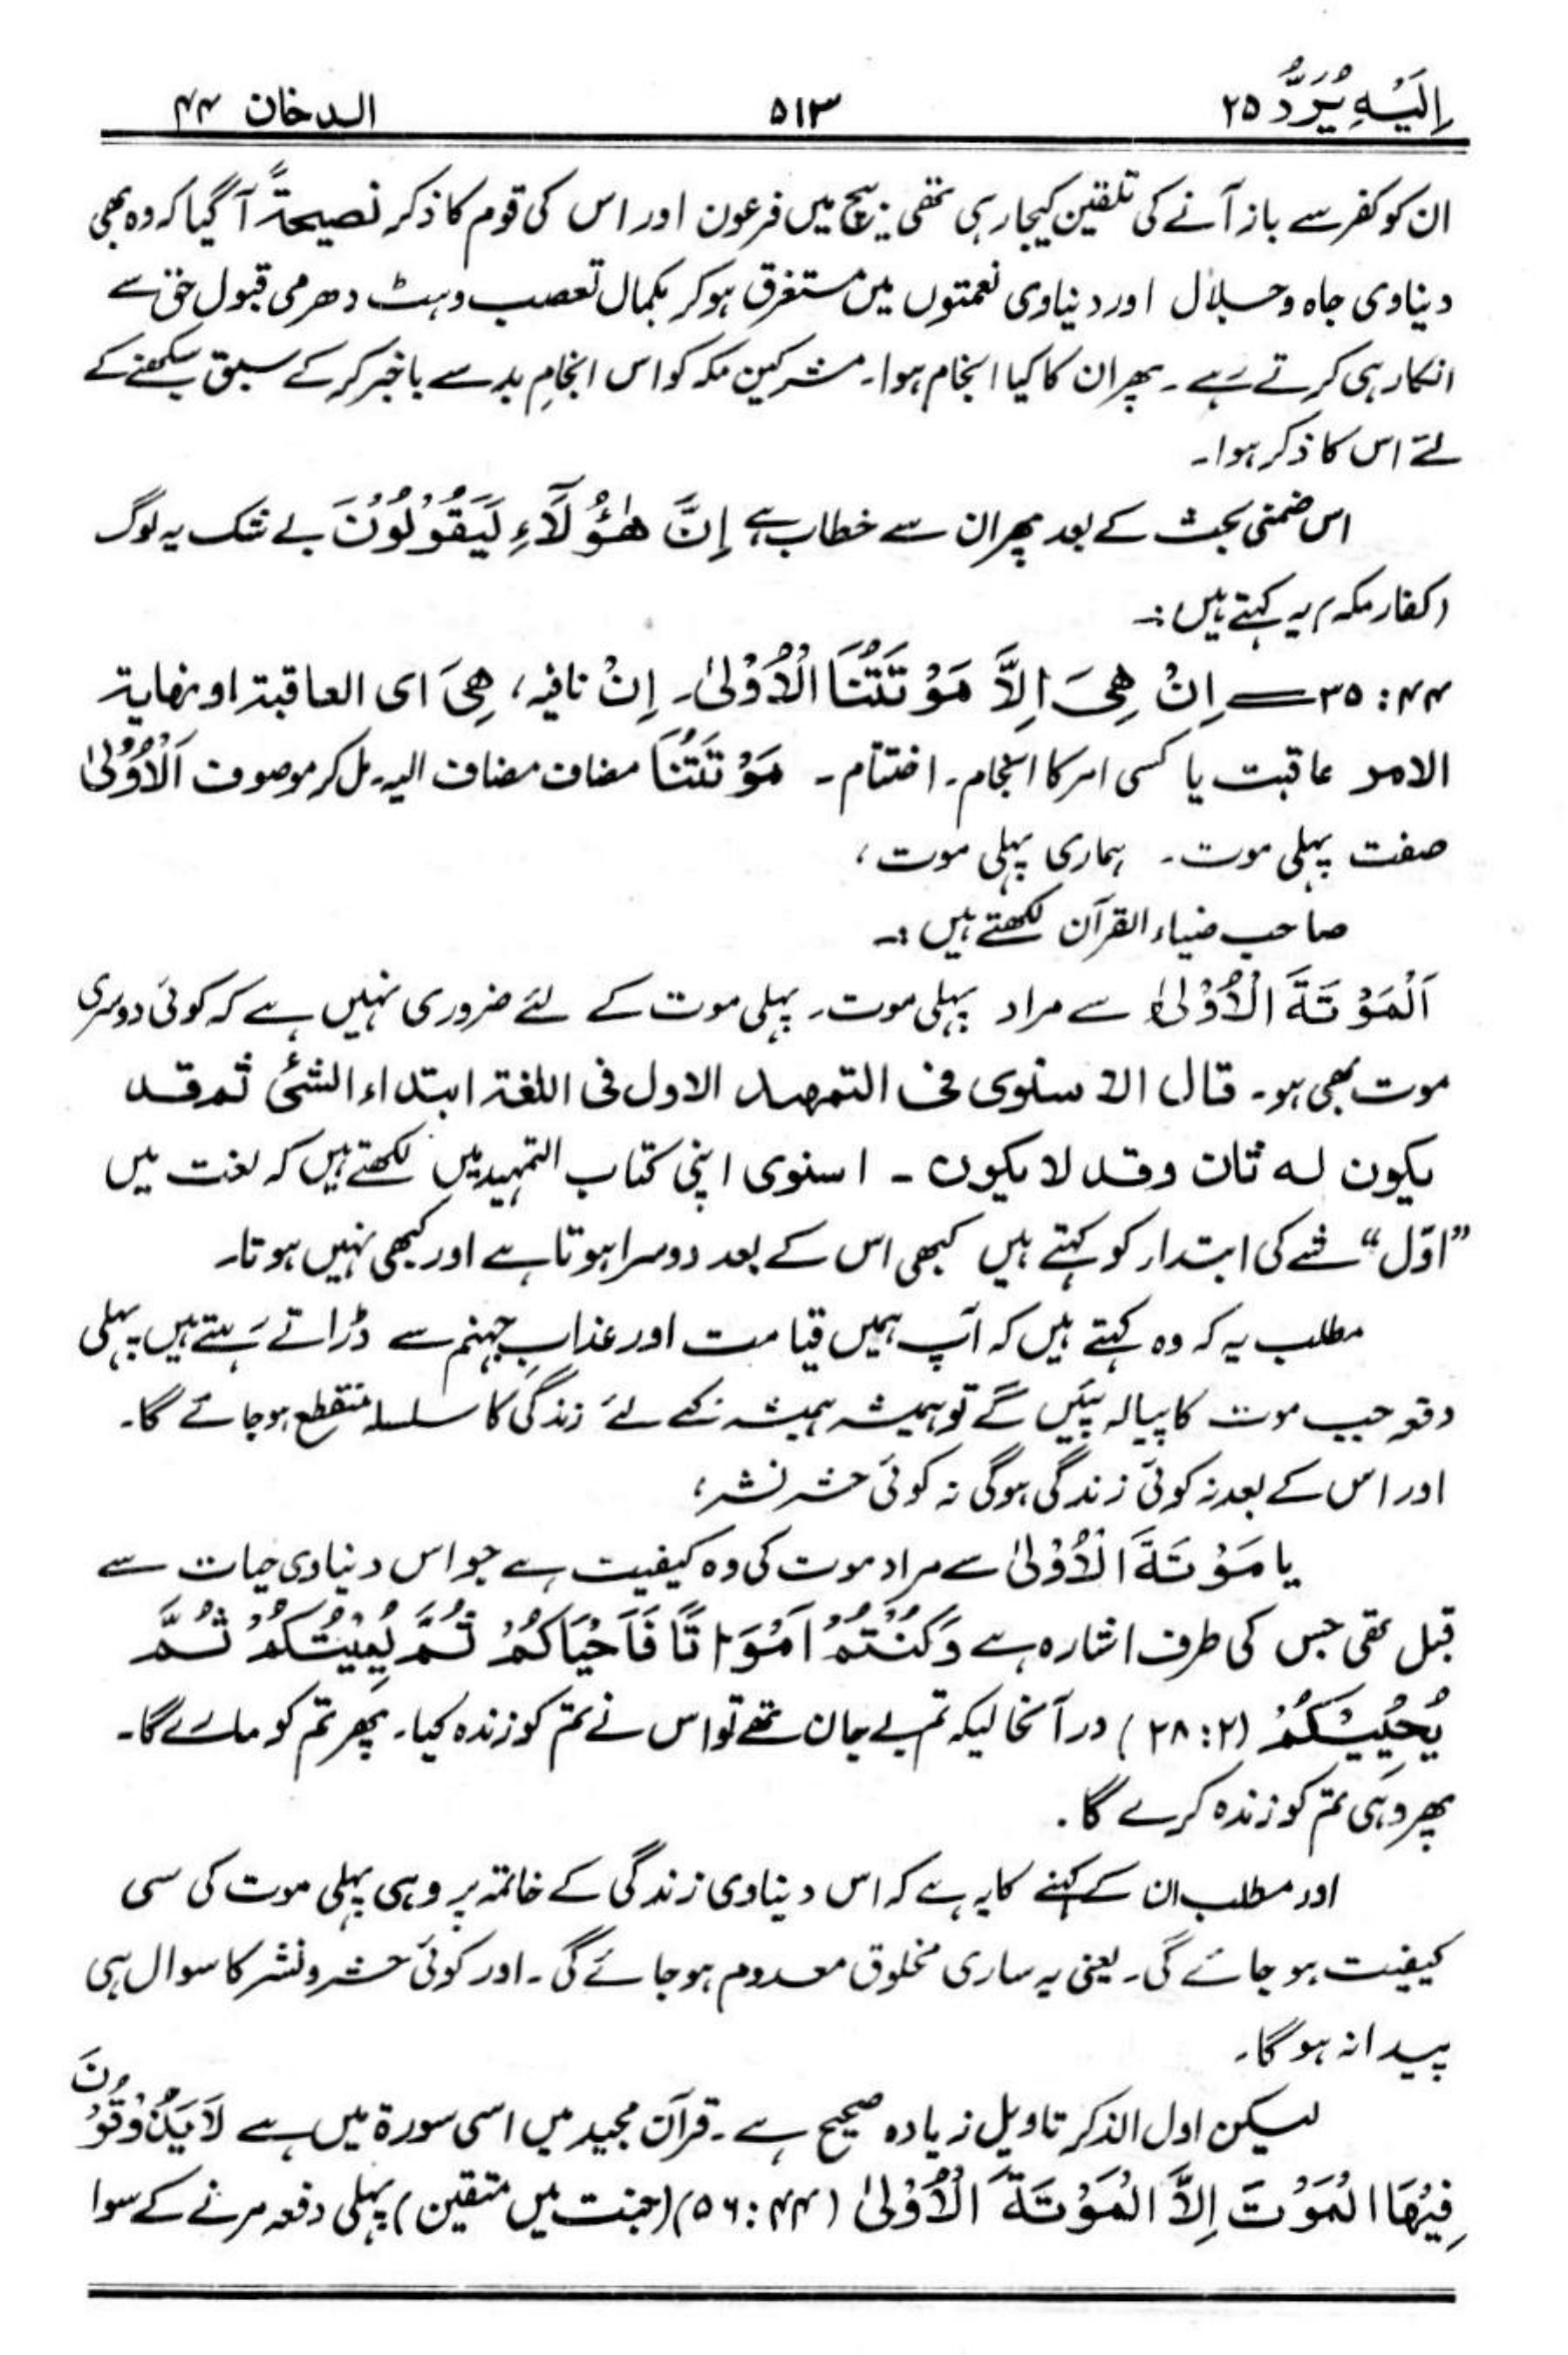 اِلَیْہِ یُرَدُّ ۲۵ ۵۱۳ الدخان ۴۴
ان کو کفر سے باز آنے کی تلقین کیجارہی تھی بیچ میں فرعون اور اس کی قوم کا ذکر نصیحۃً آگیا کہ وہ بھی
دیناوی جاہ وجلال اور دنیاوی نعمتوں میں مستغرق ہوکر بکمال تعصب وہٹ دھرمی قبول حق سے
انکار ہی کرتے رہے ۔ پھر ان کا کیا انجام ہوا۔ مشرکین مکہ کو اس انجامِ بد سے باخبر کرکے سبق سیکھنے کے
لئے اس کا ذکر ہوا۔
اس ضمنی بحث کے بعد پھر ان سے خطاب ہے اِنَّ ھٰٓؤُلَآءِ لَیَقُوْلُوْنَ بے شک یہ لوگ
(کفار مکہ) یہ کہتے ہیں :۔
۴۴: ۳۵ = اِنْ ھِیَ اِلَّا مَوْتَتُنَا الْاُوْلٰی۔ اِنْ نافیہ، ھِیَ ای العاقبۃ او نھایۃ
الامر عاقبت یا کسی امر کا انجام۔ اختتام ۔ مَوْتَتُنَا مضاف مضاف الیہ۔ مل کر موصوف اَلْاُوْلٰی
صفت پہلی موت ۔ ہماری پہلی موت ،
صاحب ضیاء القرآن لکھتے ہیں :۔
اَلْمَوْتَۃَ الْاُوْلٰی سے مراد پہلی موت۔ پہلی موت کے لئے ضروری نہیں ہے کہ کوئی دوسری
موت بھی ہو۔ قال الاسنوی فی التمھید الاول فی اللغۃ ابتداء الشئ ثم قد
یکون لہ ثان وقد لا یکون ۔ اسنوی اپنی کتاب التمہید میں لکھتے ہیں کہ لغت میں
”اوّل“ شے کی ابتدار کو کہتے ہیں کبھی اس کے بعد دوسرا ہوتا ہے اور کبھی نہیں ہوتا۔
مطلب یہ کہ وہ کہتے ہیں کہ آپ ہمیں قیامت اور عذابِ جہنم سے ڈراتے رہتے ہیں پہلی
دفعہ جب موت کا پیالہ پئیں گے تو ہمیشہ ہمیشہ کے لئے زندگی کا سلسلہ منقطع ہوجائے گا۔
اور اس کے بعد نہ کوئی زندگی ہوگی نہ کوئی حشر نشر،
یا مَوْتَۃَ الْاُوْلٰی سے مراد موت کی وہ کیفیت ہے جو اس دنیاوی حیات سے
قبل تھی جس کی طرف اشارہ ہے وَکُنْتُمْ اَمْوَاتًا فَاَحْیَاکُمْ ثُمَّ یُمِیْتُکُمْ ثُمَّ
یُحْیِیْکُمْ (۲: ۲۸) درآنحالیکہ تم بے جان تھے تو اس نے تم کو زندہ کیا۔ پھر تم کو مارے گا۔
پھر وہی تم کو زندہ کرے گا۔
اور مطلب ان کے کہنے کا یہ ہے کہ اس دیناوی زندگی کے خاتمہ پر وہی پہلی موت کی سی
کیفیت ہو جائے گی۔ یعنی یہ ساری مخلوق معدوم ہو جائے گی ۔ اور کوئی حشر و نشر کا سوال ہی
پیدا نہ ہوگا۔
لیکن اول الذکر تاویل زیادہ صحیح ہے ۔ قرآن مجید میں اسی سورۃ میں ہے لَا یَذُوْقُوْنَ
فِیْھَا الْمَوْتَ اِلَّا الْمَوْتَۃَ الْاُوْلٰی (۴۴: ۵۶) (جنت میں متقین) پہلی دفعہ مرنے کے سوا